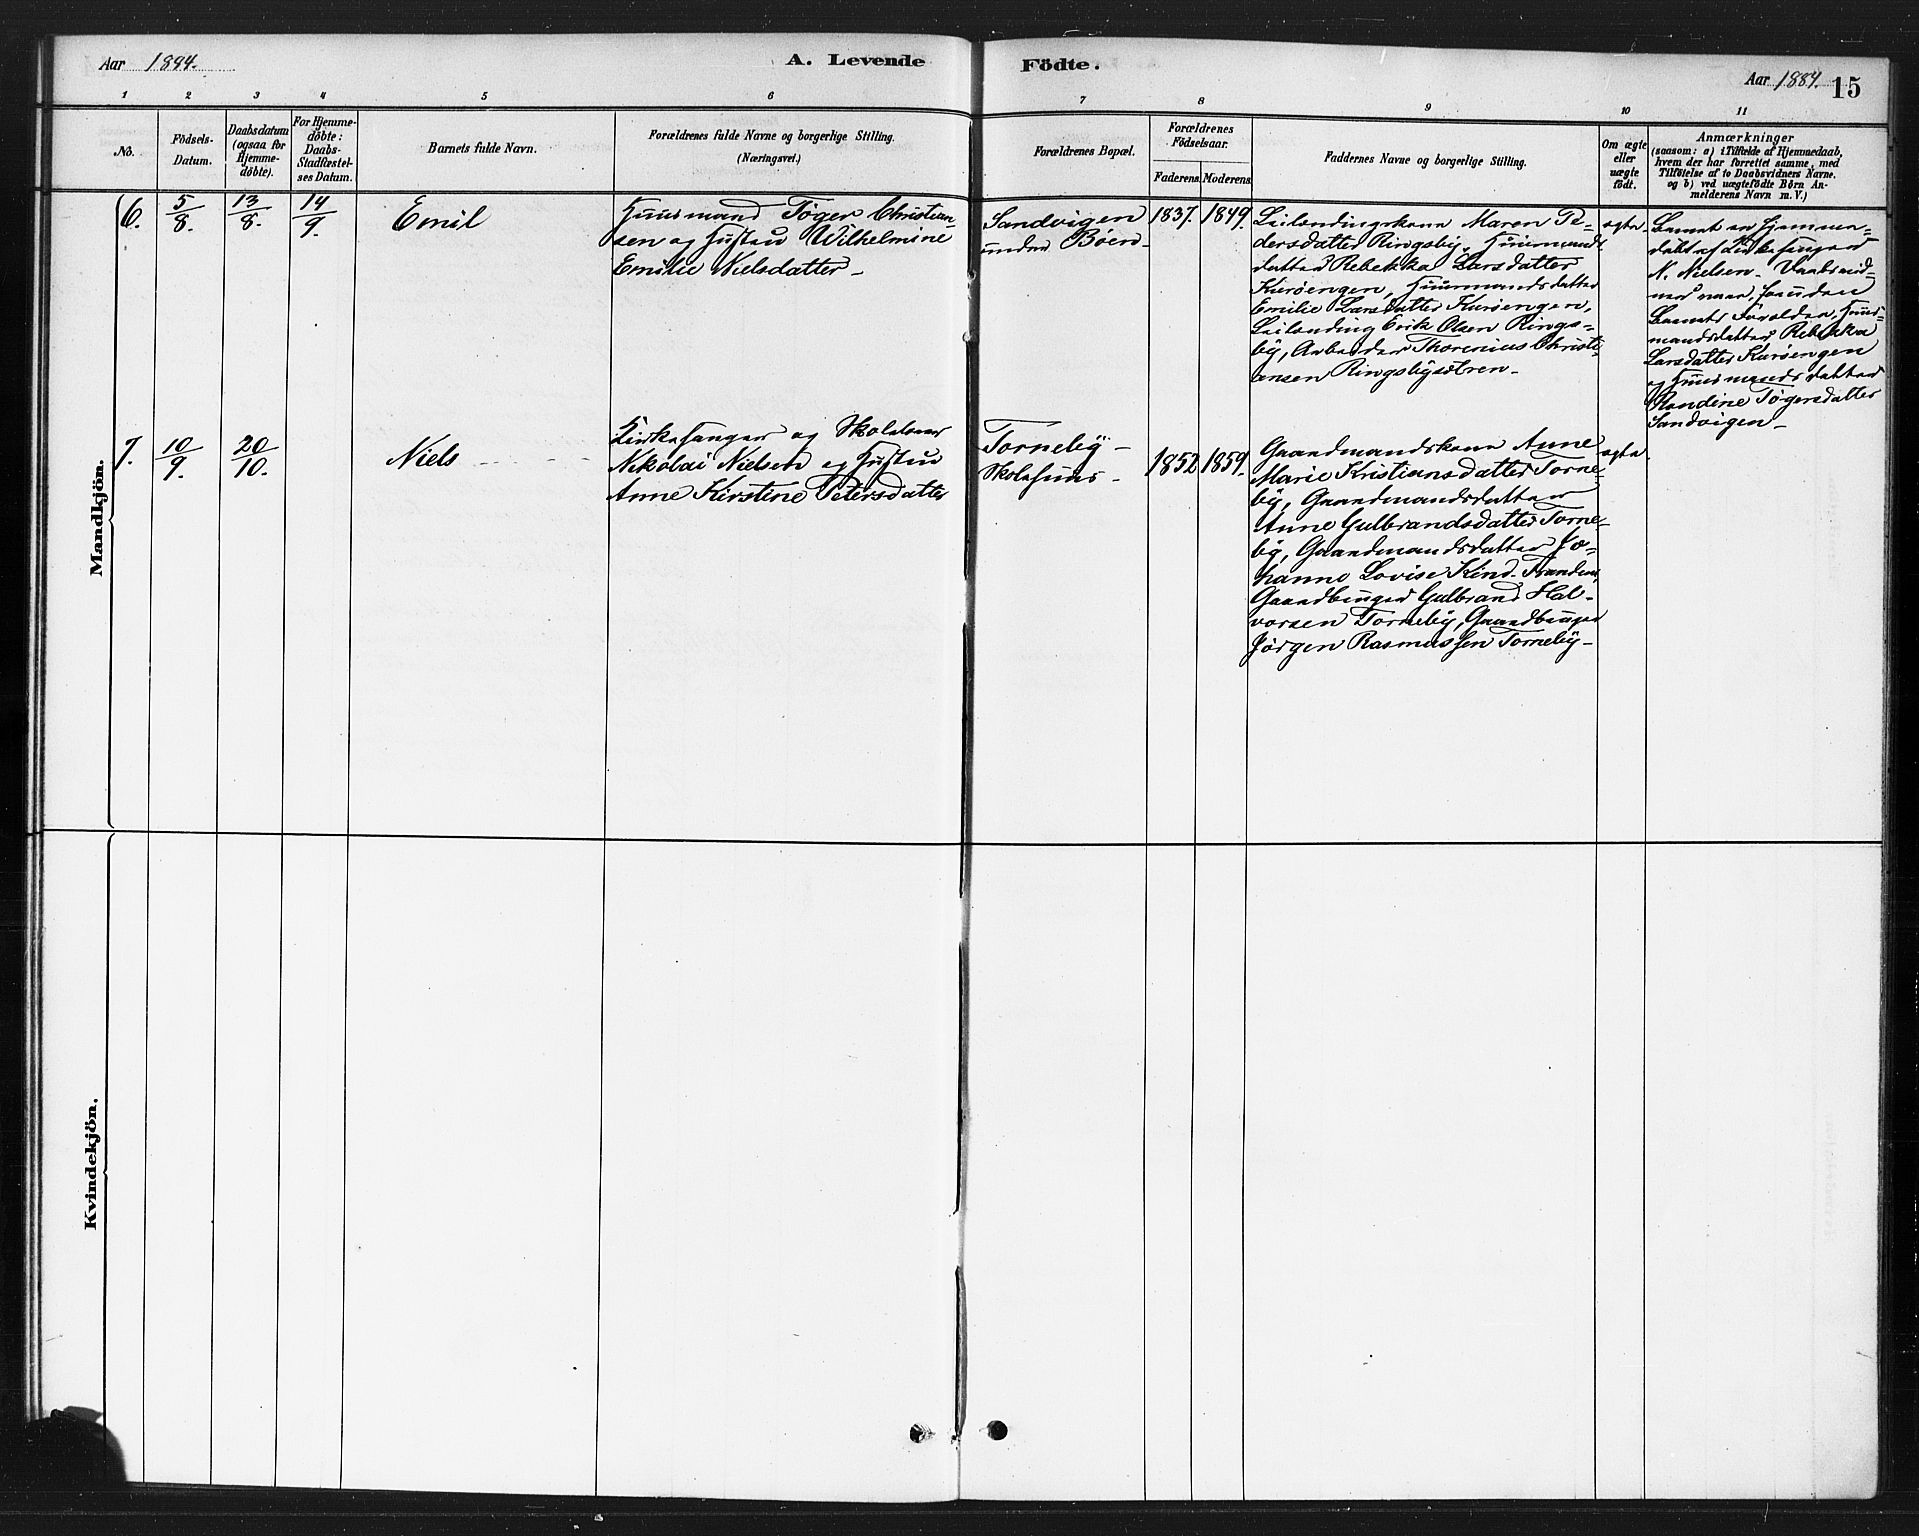 Aar 1894.
A. Levende
Födte.
Aar 1884. 15
1 2 3 4 5 6 7 8 9 10 11
No.
Födsels-
Datum.
Daabsdatum
(ogsaa for
Hjemme-
döbte).
For Hjemme-
döbte:
Daabs-
Stadfæstel-
ses Datum.
Barnets fulde Navn.
Forældrenes fulde Navne og borgerlige Stilling.
(Næringsvei.)
Forældrenes Bopæl.
Forældrenes
Födselsaar.
Faderens. Moderens.
Faddernes Navne og borgerlige Stilling.
Om ægte
eller
uægte
födt.
Anmærkninger
(saasom: a) i Tilfælde af Hjemmedaab,
hvem der har forrettet samme, med
Tilföielse af to Daabsvidners Navne.
og b) ved uægtefödte Börn An-
melderens Navn m. V.)
Mandkjön.
6.
5/8.
13/8.
14/9.
Emil
Huusmand Töger Christian-
sen og Hustru Wilhelmine
Emilie Nielsdatter -
Sandvigen
under Böen -
1837. 1849.
Leilændingskone Maren Pe-
dersdatter Ringsby, Huusmands-
datter Rebekka Larsdatter
Kuröengen, Huusmandsdatter
Emilie Larsdatter Kuröengen,
Leilænding Erik Olsen Rings-
by, Arbeider Thorenius Christi-
ansen Ringsbysætren -
ægte.
Barnet er hjemme-
döbt af Kirkesanger
N. Nielsen - Daabsvid-
ner var, foruden
Barnets Forældre, Huus-
mandsdatter Rebekka
Larsdatter Kuröengen
og Huusmandsdatter
Randine Tögersdatter
Sandvigen -
7.
10/9.
20/10.
Niels
Kirkesanger og Skolelærer
Nikolai Nielsen og Hustru
Anne Kirstine Petersdatter
Torneby -
Skolehuus -
1852 1859.
Gaardmandskone Anne
Marie Kristiansdatter Torne-
by, Gaardmandsdatter
Anne Gulbrandsdatter Torne-
by, Gaardmandsdatter Jo-
hanne Lovise Kind-
Gaardbruger Gulbrand Hal-
vorsen Torneby, Gaardbruger
Jörgen Rasmussen Torneby -
ægte.
Kvindekjön.